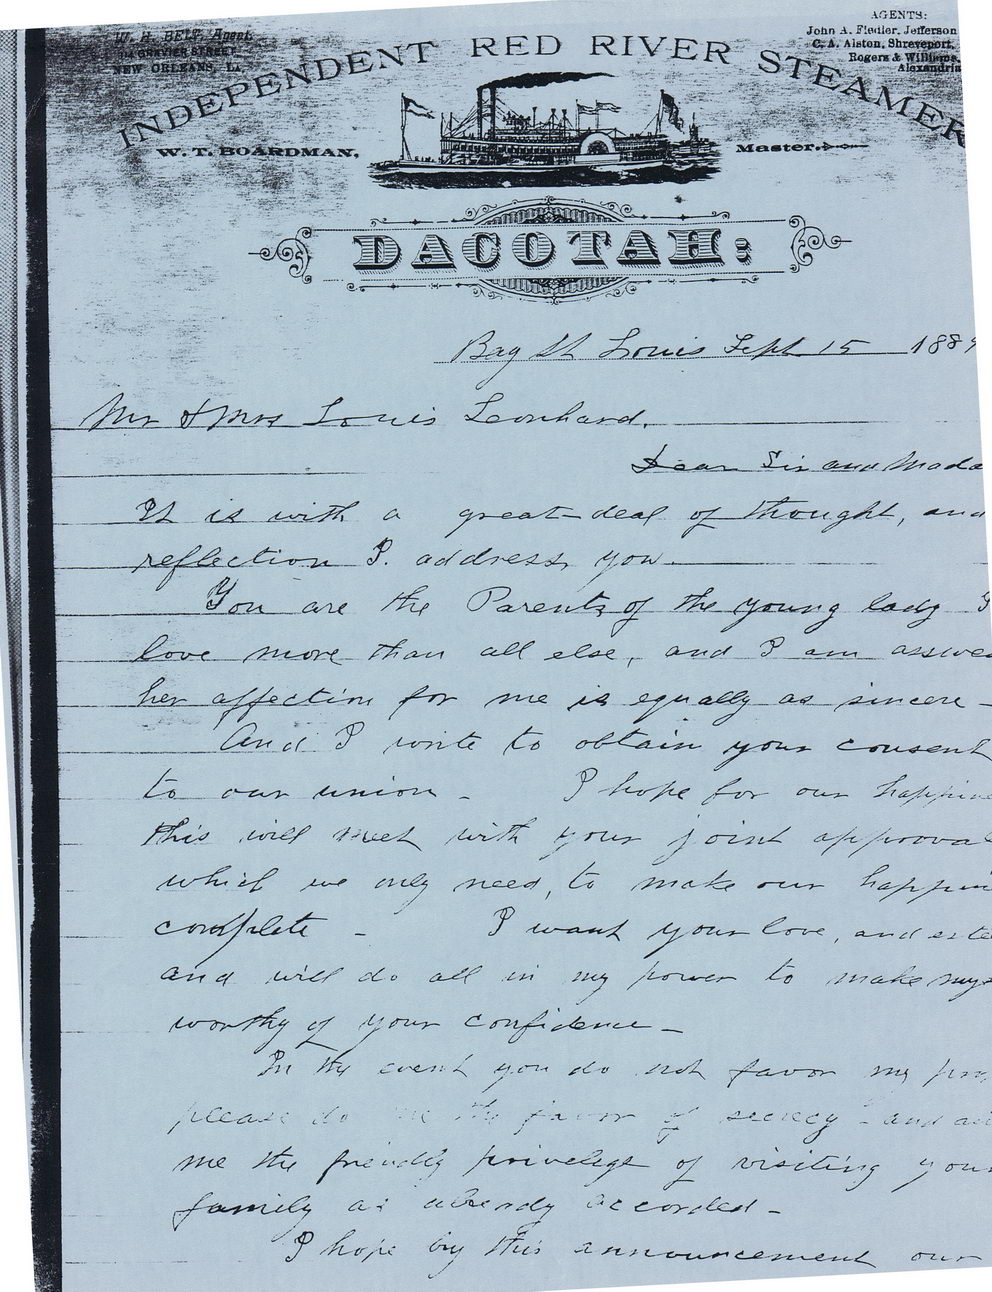 W. H. BELL, Agent,
GRAVIER STREET
NEW ORLEANS, L
AGENTS:
John A. Fiedler, Jefferson
C. A. Alston, Shreveport,
Rogers & Williams,
Alexandria
INDEPENDENT RED RIVER STEAMER
W. T. BOARDMAN, Master.
DACOTAH:
Bay St Louis Sept 15 188
Mr & Mrs Louis Leonhard.
Dear Sir and Mada
It is with a great deal of thought, and
reflection I. address you.
You are the Parents of the young lady I
love more than all else, and I am assured
her affection for me is equally as sincere -
And I write to obtain your consent
to our union - I hope for our happine
this will meet with your joint approval
which we only need, to make our happin
complete - I want your love, and este
and will do all in my power to make mys
worthy of your confidence -
In the event you do not favor my pro
please do me the favor of secrecy - and
me the friendly privelege of visiting your
family as already accorded -
I hope by this announcement our